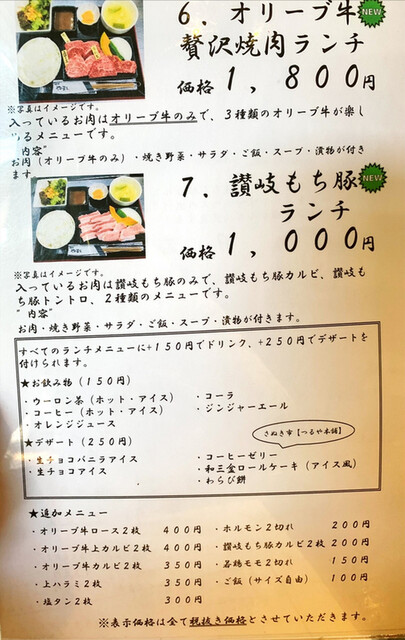 6．オリーブ牛
NEW
贅沢焼肉ランチ
価格１，８００円
※写真はイメージです。
入っているお肉はオリーブ牛のみで、３種類のオリーブ牛が楽し
るメニューです。
"内容"
お肉（オリーブ牛のみ）・焼き野菜・サラダ・ご飯・スープ・漬物が付き
ます。
7．讃岐もち豚
NEW
ランチ
価格１，０００円
※写真はイメージです。
入っているお肉は讃岐もち豚のみで、讃岐もち豚カルビ、讃岐も
ち豚トントロ、２種類のメニューです。
"内容"
お肉・焼き野菜・サラダ・ご飯・スープ・漬物が付きます。
すべてのランチメニューに＋１５０円でドリンク、＋２５０円でデザートを
付けられます。
★お飲み物（１５０円）
・ウーロン茶（ホット・アイス）
・コーラ
・コーヒー（ホット・アイス）
・ジンジャーエール
・オレンジジュース
さぬき市【つるや本舗】
★デザート（２５０円）
・生チョコバニラアイス
・コーヒーゼリー
・生チョコアイス
・和三盆ロールケーキ（アイス風）
・わらび餅
★追加メニュー
・オリーブ牛ロース２枚 ４００円
・ホルモン２切れ ２００円
・オリーブ牛上カルビ２枚 ４００円
・讃岐もち豚カルビ２枚 ２００円
・オリーブ牛カルビ２枚 ３５０円
・若鶏モモ２切れ １５０円
・上ハラミ２枚 ３５０円
・ご飯（サイズ自由） １００円
・塩タン２枚 ３００円
※表示価格は全て税抜き価格とさせていただきます。